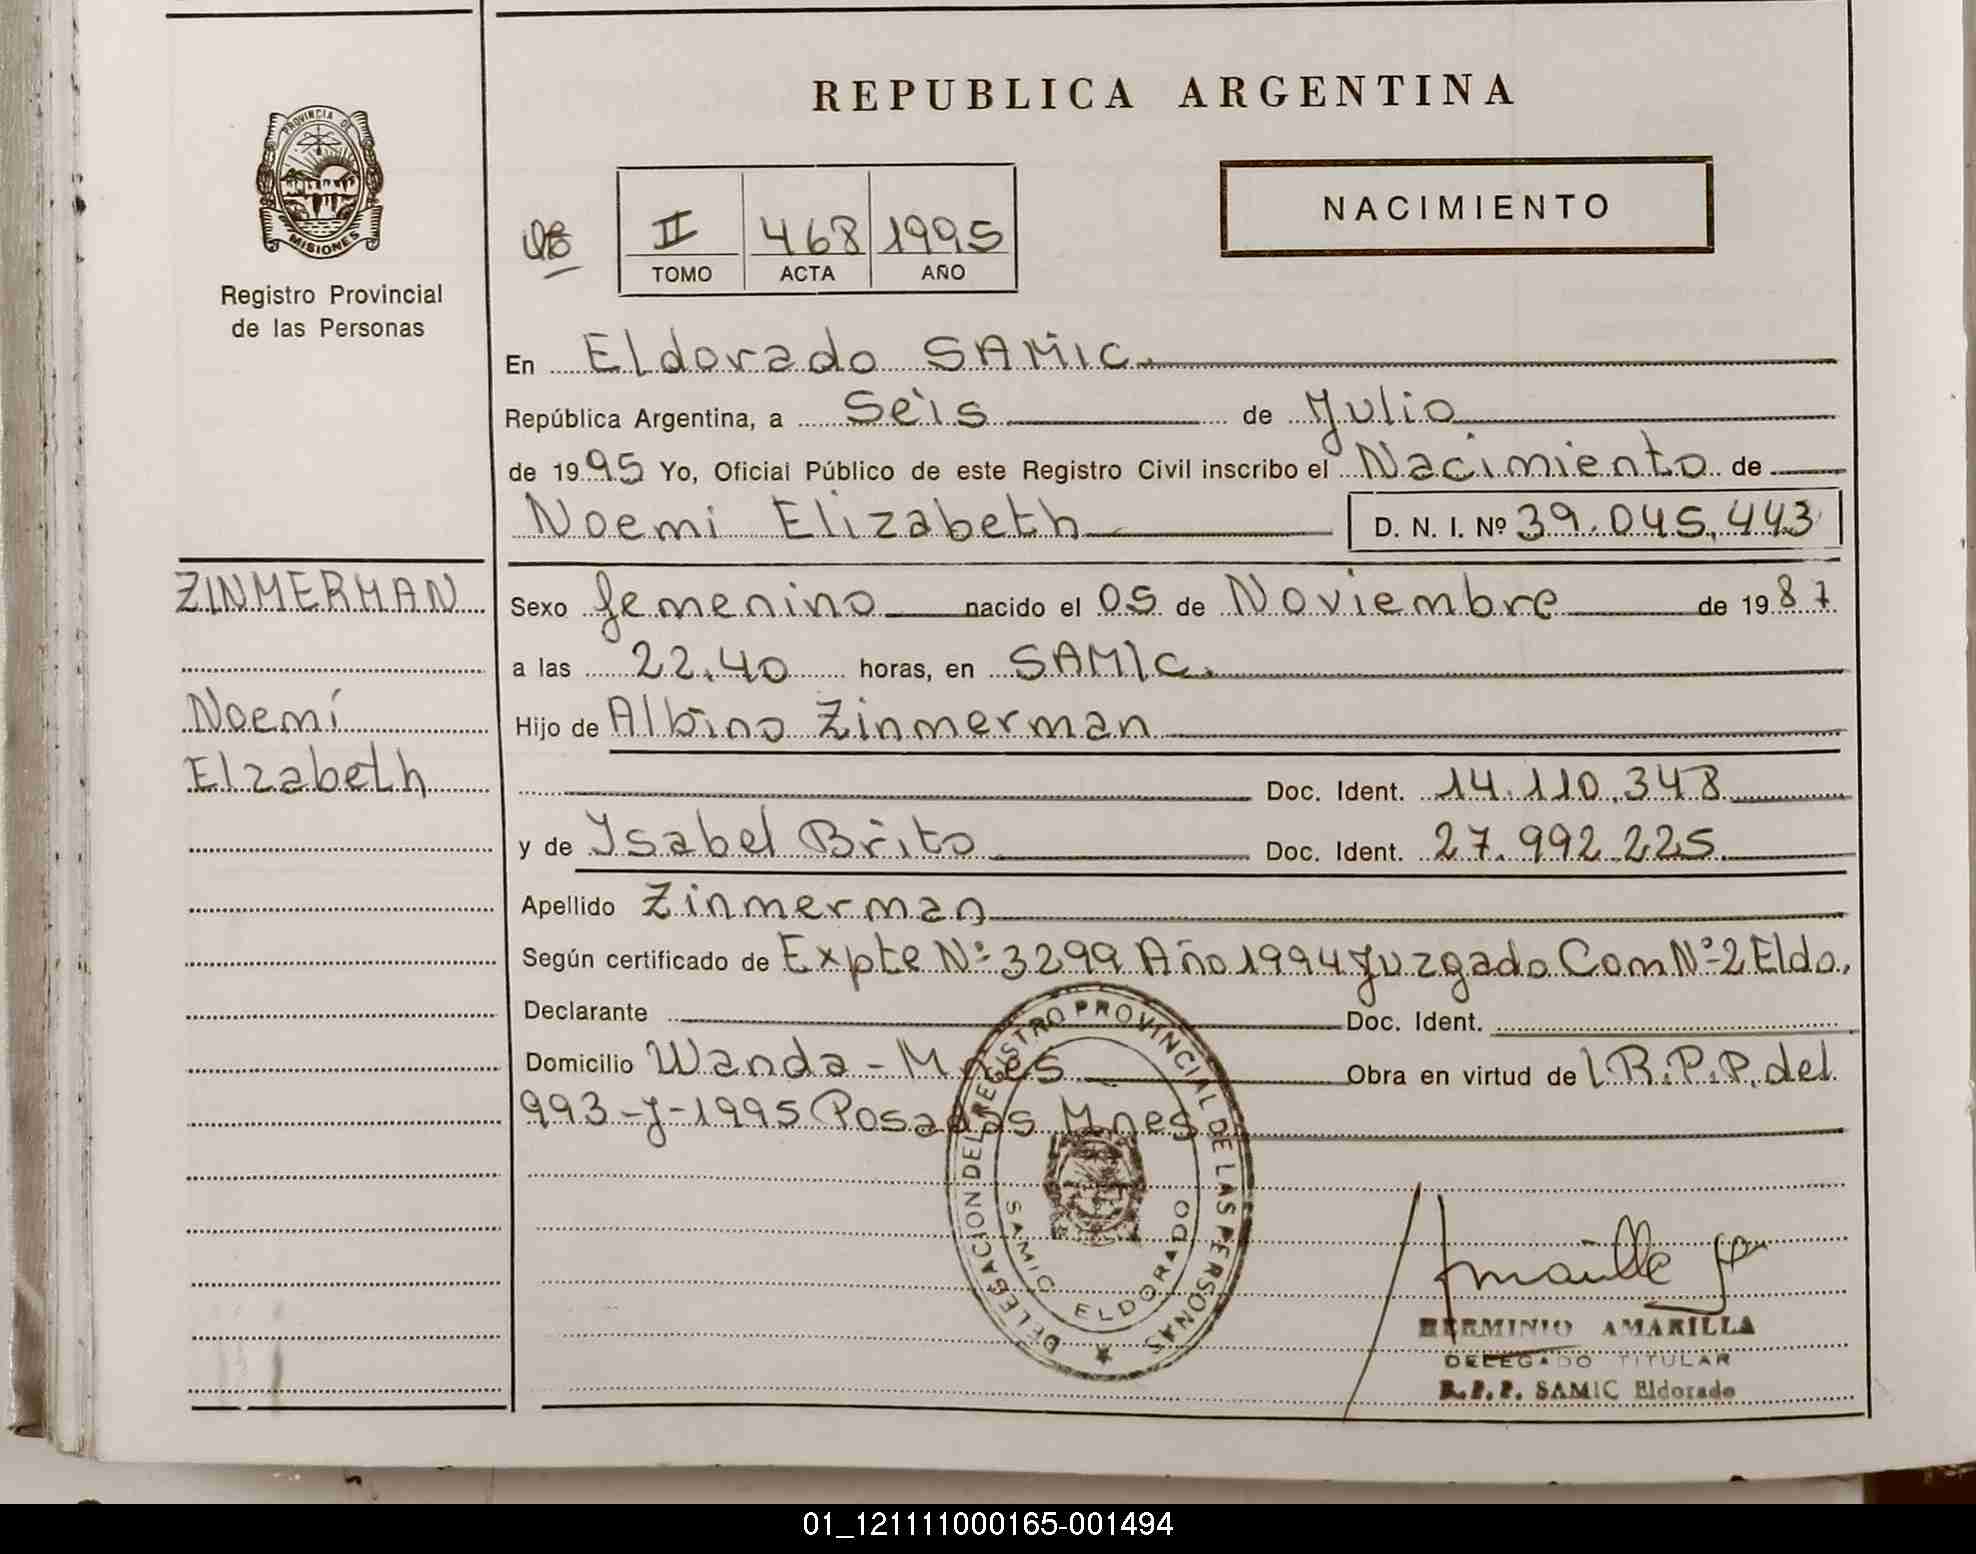 REPUBLICA ARGENTINA
PROVINCIA DE
MISIONES
Registro Provincial
de las Personas
NACIMIENTO
II 468 1995
TOMO ACTA AÑO
En Eldorado SAMIC.
República Argentina, a Seis de Julio
de 1995 Yo, Oficial Público de este Registro Civil inscribo el Nacimiento de
Noemi Elizabeth D. N. I. Nº 39.045.443
ZINMERMAN
Noemí
Elzabeth
Sexo femenino nacido el 05 de Noviembre de 1987
a las 22.40 horas, en SAMIC.
Hijo de Albino Zinmerman
Doc. Ident. 14.110.348
y de Ysabel Brito Doc. Ident. 27.992.225
Apellido Zinmerman
Según certificado de Expte Nº 3299 Año 1994 Juzgado Com Nº 2 Eldo.
Declarante Doc. Ident.
Domicilio Wanda - Mnes Obra en virtud de R.P.P. del
993-J-1995 Posadas Mnes
DELEGACION DEL REGISTRO PROVINCIAL DE LAS PERSONAS
SAMIC ELDORADO
HERMINIO AMARILLA
DELEGADO TITULAR
R.P.P. SAMIC Eldorado
01_121111000165-001494